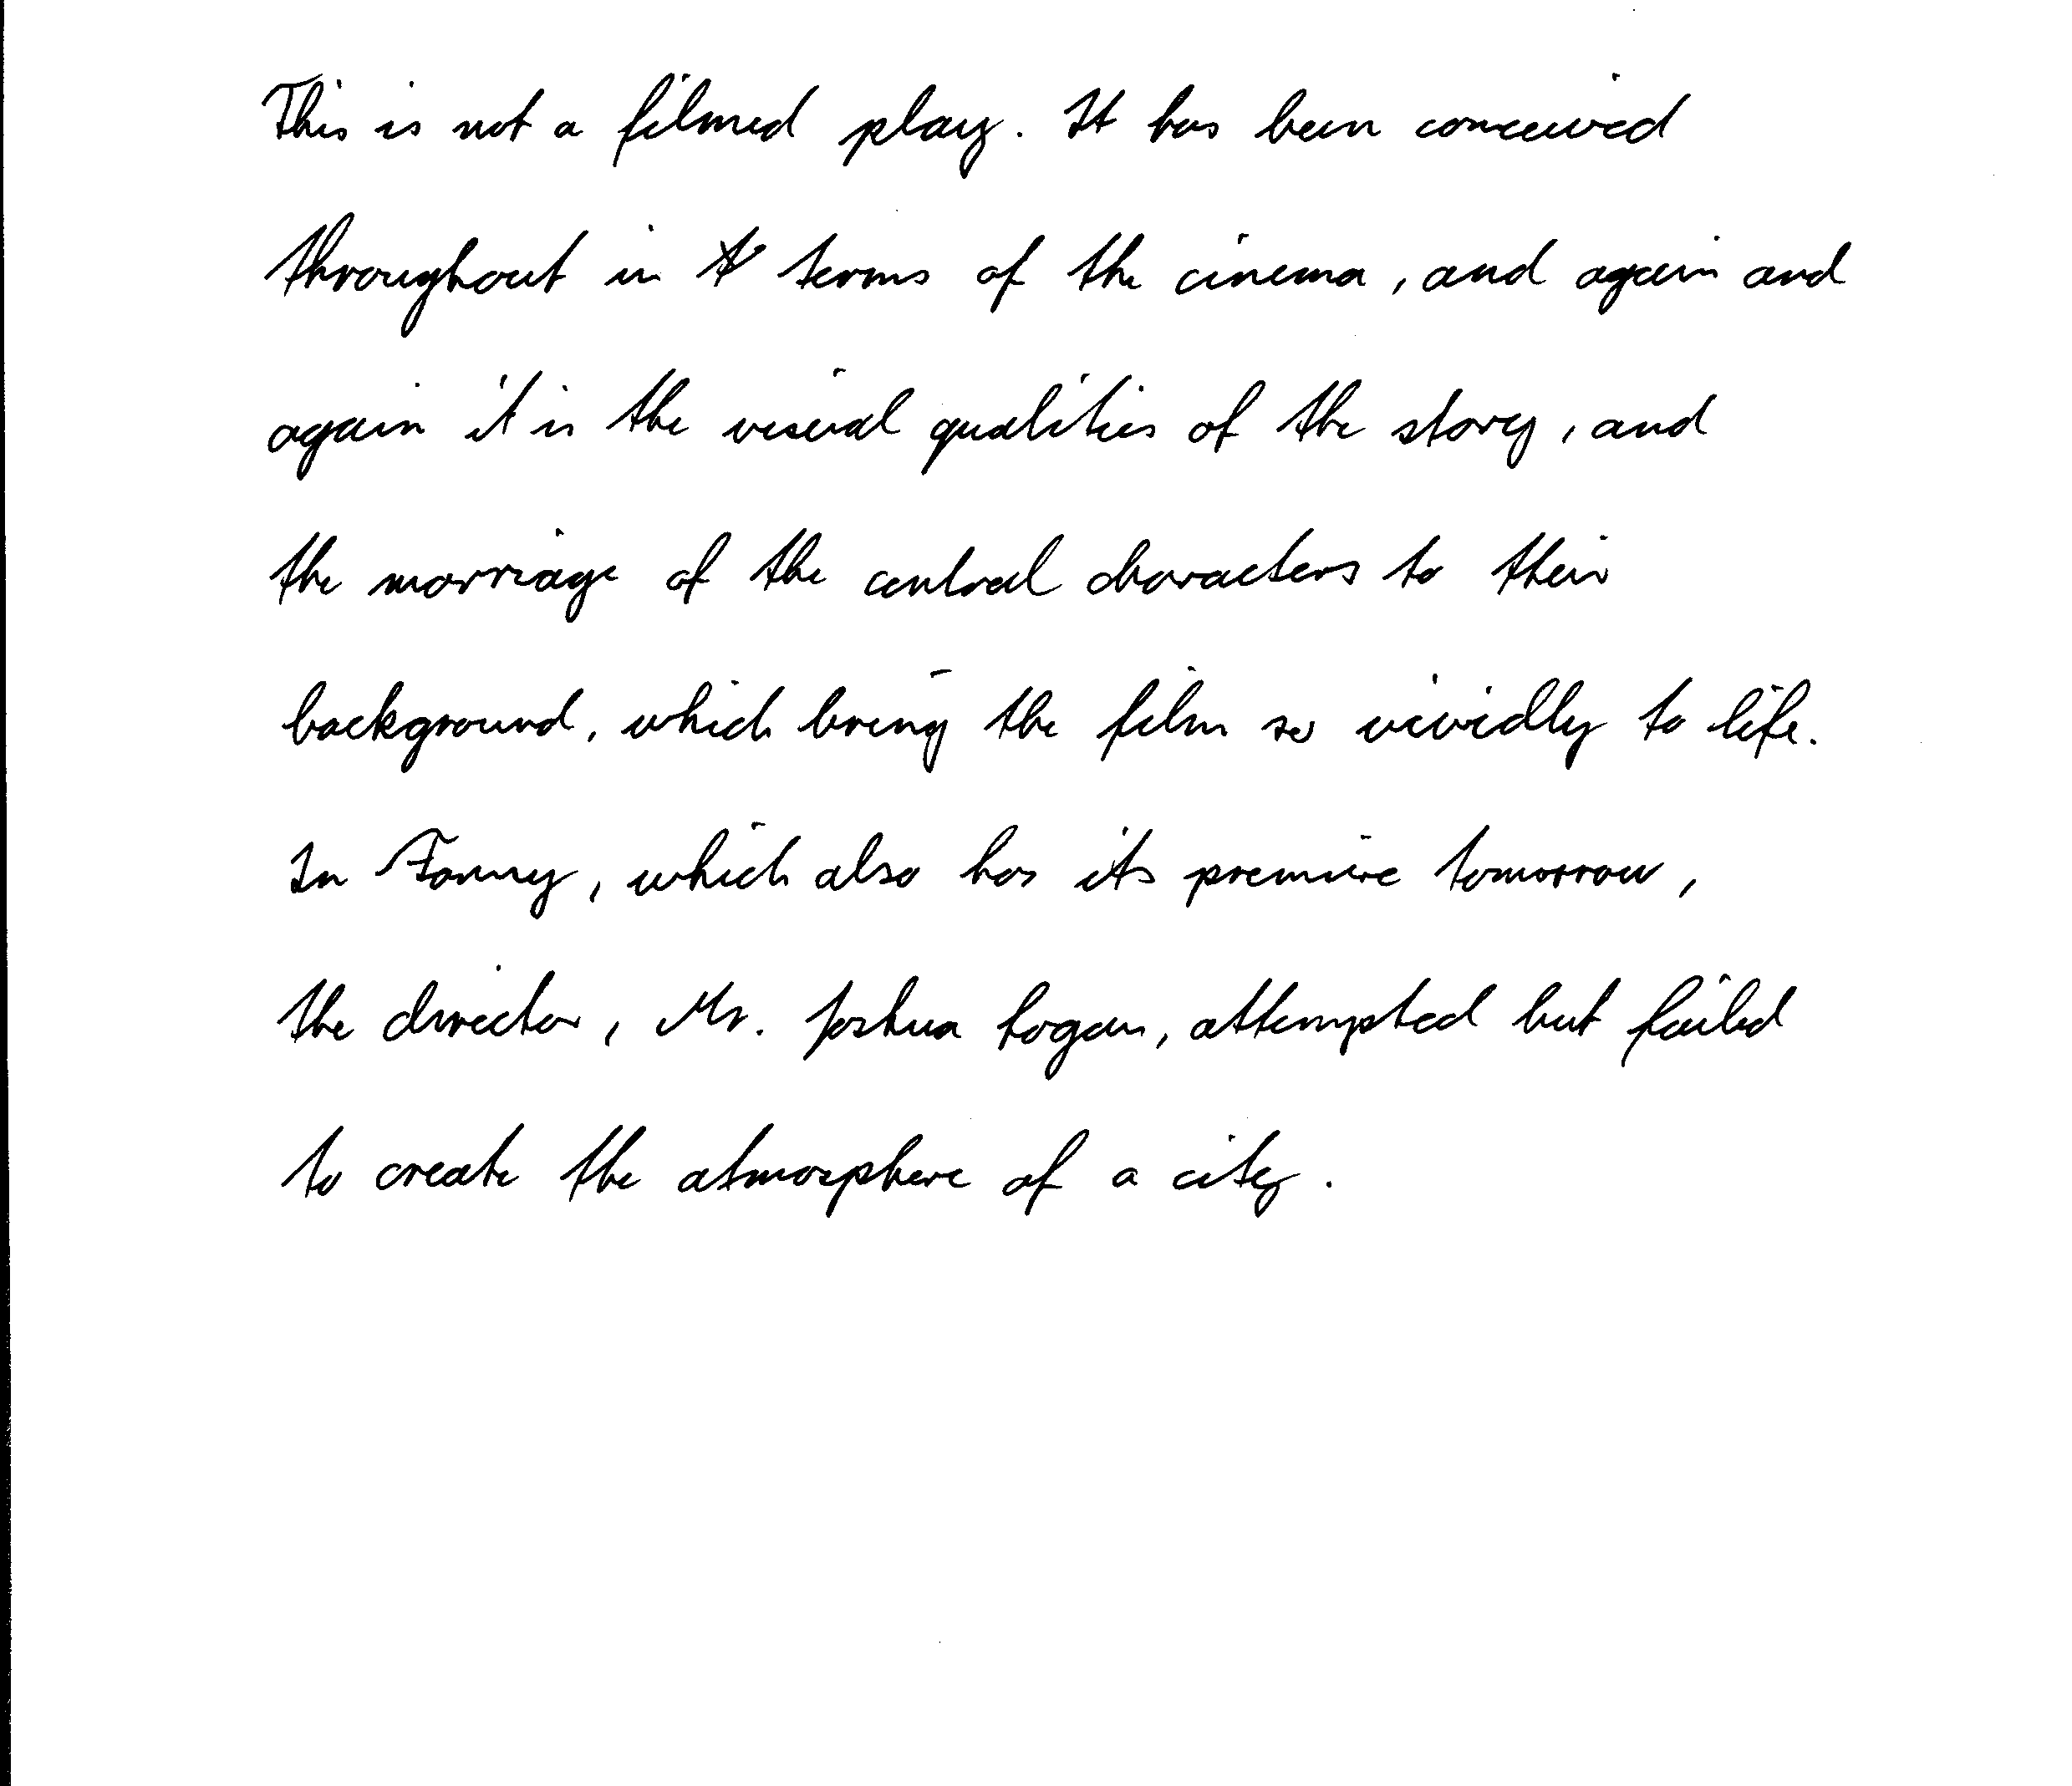 This is not a filmed play. It has been conceived
throughout in terms of the cinema, and again and
again it is the visual qualities of the story, and
the marriage of the central characters to their
background, which bring the film so vividly to life.
In Fanny, which also has its premiere tomorrow,
the director, Mr. Joshua Logan, attempted but failed
to create the atmosphere of a city.